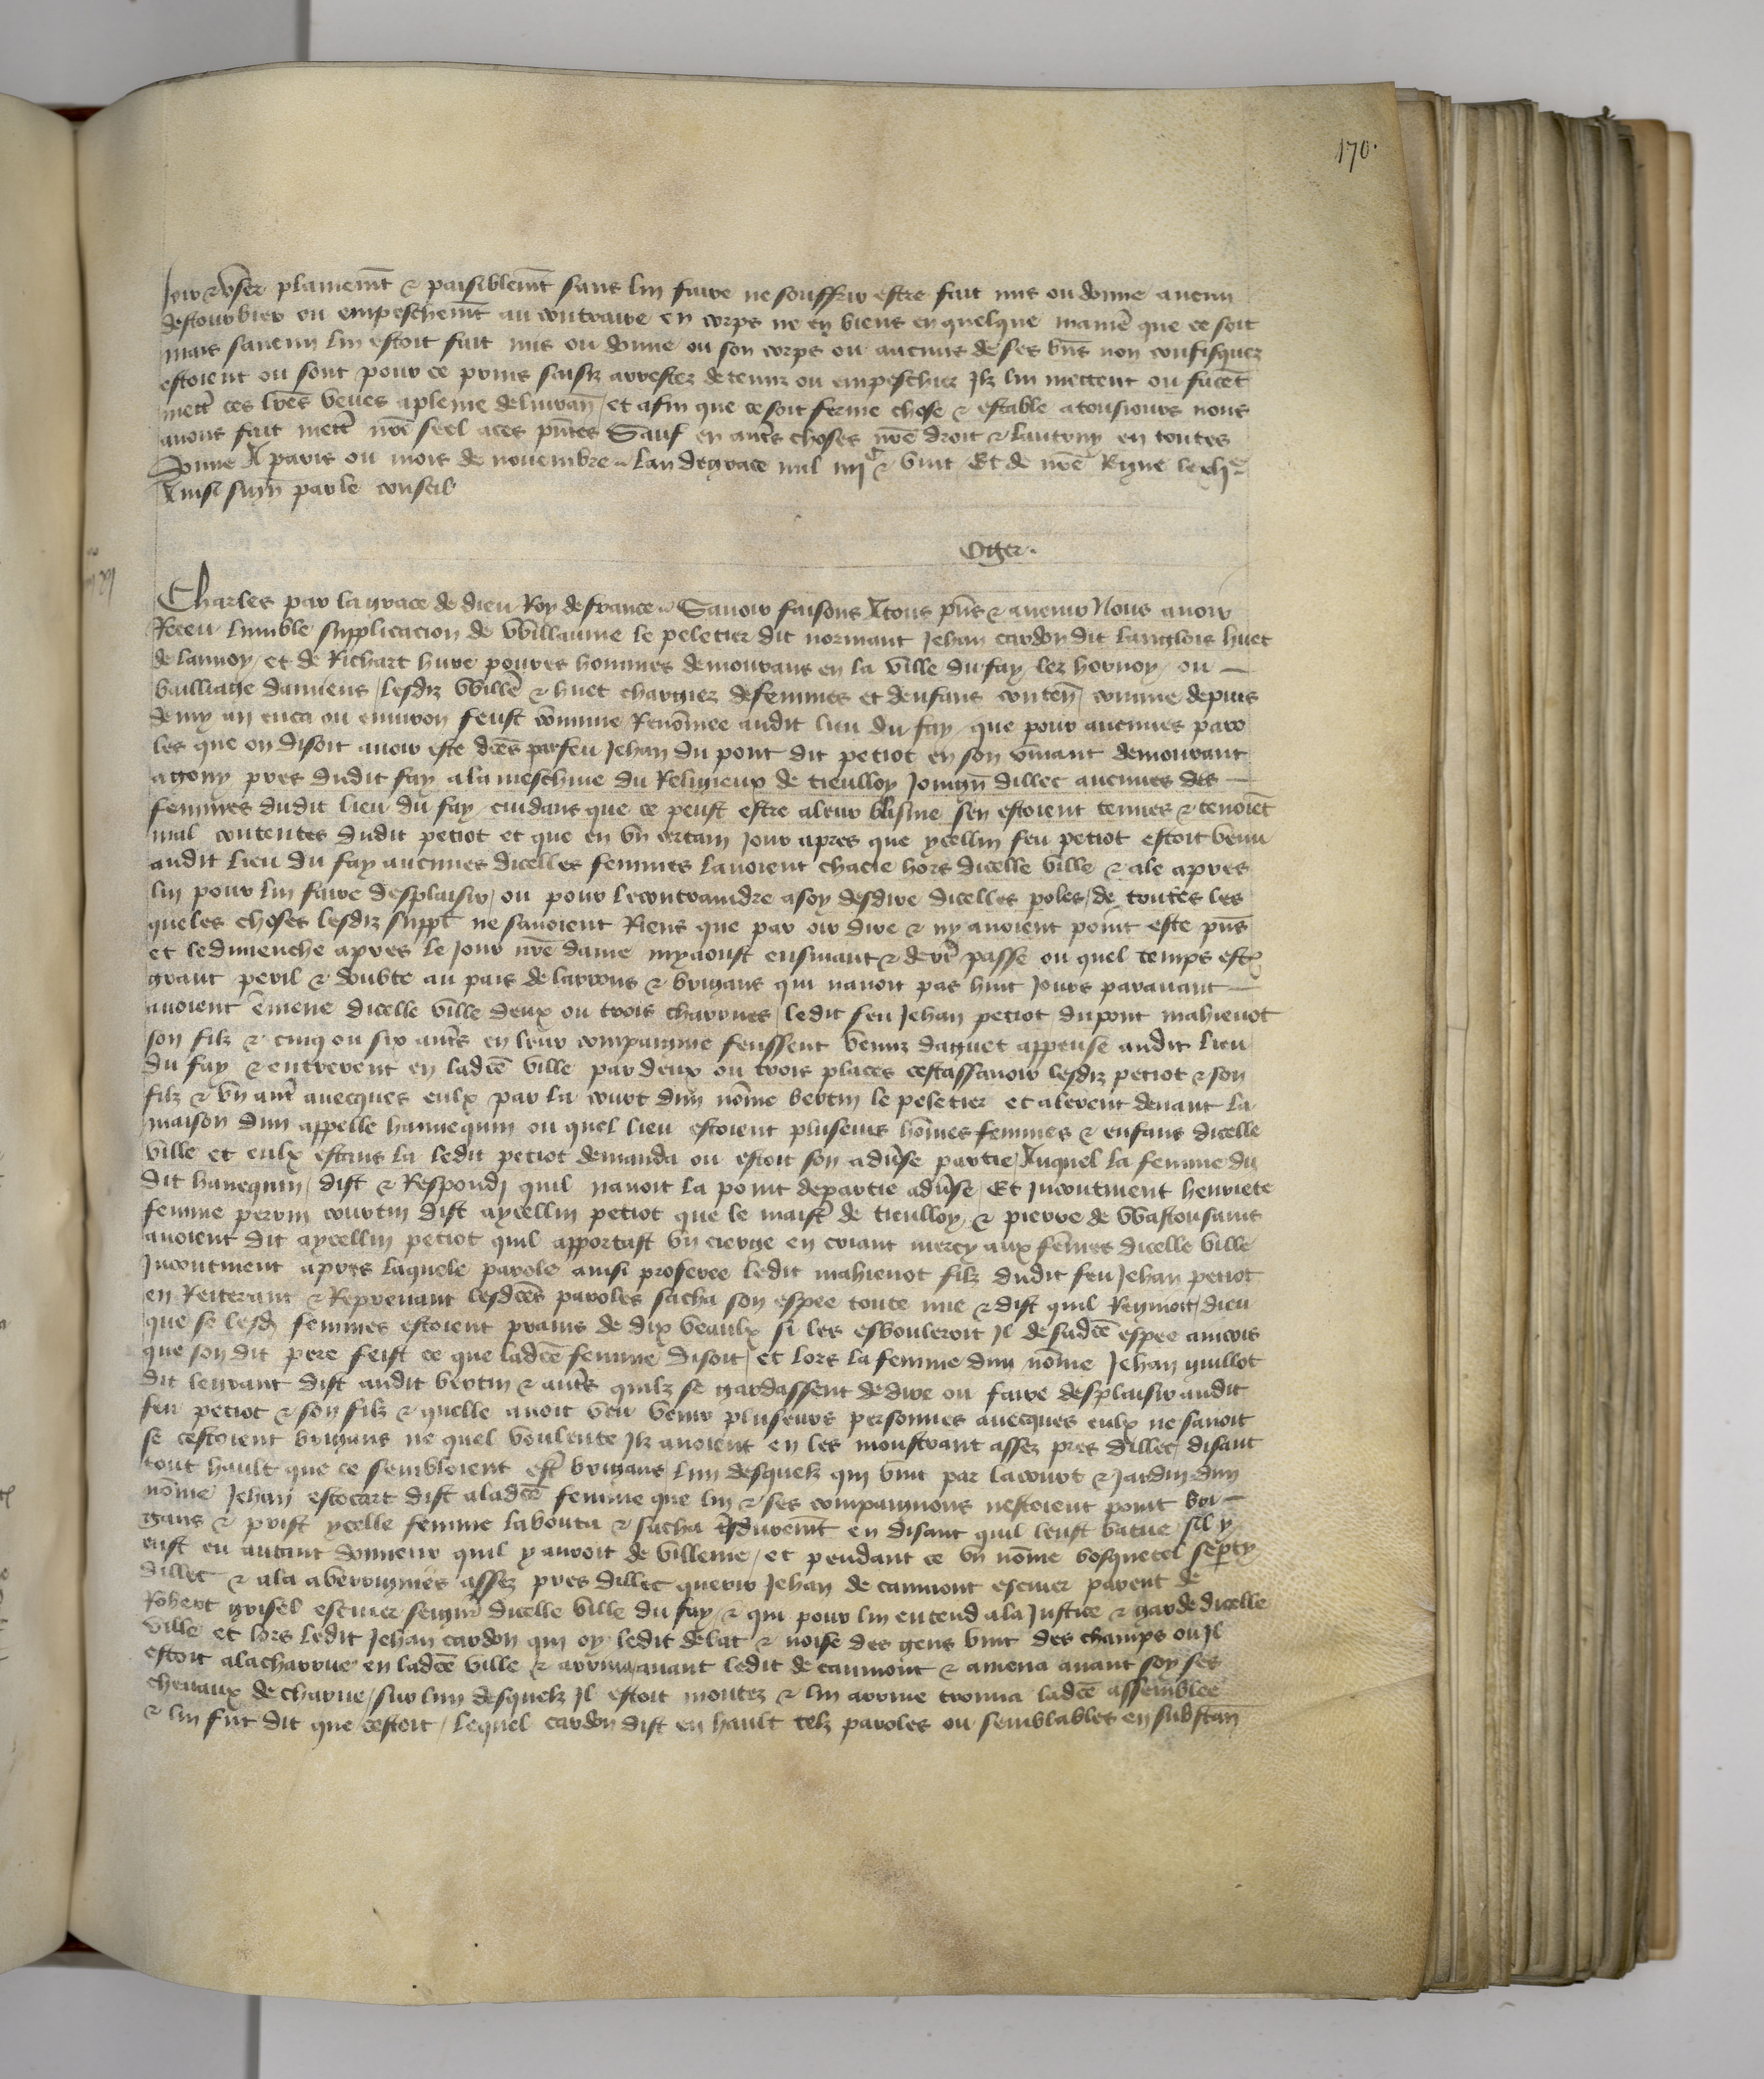 170.
Joir & user plainemt & paisiblemt sans lui faire ne souffrir estre fait mis ou donne aucun
destourbier ou empeschemt au contraire en corps ne en biens en quelque manie que ce soit
mais saucun lui estoit fait mis ou donne ou son corps ou aucuns de ses bns non confisquez
estoient ou sont pour ce prins saisiz arrestez detenuz ou empeschiez Ilz lui mettent ou facet
mett ces lres veues a pleine delivran / et afin que ce soit ferme chose & estable a tousiours nous
avons fait mett nre seel a ces pntes Sauf en auts choses nre droit & lautruy en toutes
Donne A paris ou mois de novembre lan de grace mil iiijc & vint Et de nre Regne le xlje
Ainsi sign par le conseil
Oger.
Charles par la grace de dieu Roy de france Savoir faisons A tous pns & avenir Nous avoir
Receu lumble supplicacion de Willaume le peletier dit normant Jehan cardon dit langlois huet
de lannoy / et de Richart hure povres hommes demourans en la ville du fay / lez hornoy / ou
bailliage damiens / lesdiz Wille & huet chargiez de femmes et denfans conten / comme depuis
demy an enca ou environ feust comme Renomee audit lieu du fay / que pour aucunes paro
les que on disoit avoir este dces par feu Jehan du pont dit petiot en son vivant demourant
a gouy pres dudit fay a la meschine du Religieux de tieulloy Joingn dillec aucunes des
femmes dudit lieu du fay / cuidans que ce peust estre a leur blasme sen estoient tenues & tenoiet
mal contentes dudit petiot et que en un certain Jour apres que ycellui feu petiot estoit venu
audit lieu du fay aucunes dicelles femmes lavoient chacie hors dicelle ville & ale apres
lui pour lui faire desplaisir / ou pour le contraindre a soy desdire dicelles poles / de toutes les
queles choses lesdiz suppl ne savoient Riens que par oir dire & ny avoient point este pns
et le dimenche apres le Jour nre dame myaoust ensuivant & derr passe ou quel temps est
grant peril & doubte au pais de larrons & brigans qui navoit pas huit Jours paravant
avoient emene dicelle ville deux ou trois charrues / ledit feu Jehan petiot du pont mahieuot
son filz & cinq ou six auts en leur compaignie feussent venuz daguet appense audit lieu
du fay & entrerent en ladce ville par deux ou trois places cestassavoir lesdiz petiot & son
filz & un aut avecques eulx par la court dun nome bertin le peletier et alerent devant la
maison dun appelle hannequin ou quel lieu estoient plusieurs homes femmes & enfans dicelle
ville et eulx estans la ledit petiot demanda ou estoit son adverse partie / Auquel la femme du
dit hanequin / dist & Respondi quil navoit la point de partie adverse / Et Incontinent henriete
femme perrin courtin dist a ycellui petiot que le maist de tieulloy / & pierre de Wastousains
avoient dit a ycellui petiot quil apportast un cierge en criant mercy aux femes dicelle ville
Incontinent apres laquele parole ainsi proferee ledit mahieuot filz dudit feu Jehan petiot
en Reiterant & Reprenant lesdces paroles sacha son espee toute nue & dist quil Regnioit dieu
que se lesd femmes estoient prains de dix veaulx si les esbouleroit Il de sadce espee aincois
que son dit pere feist ce que ladce femme disoit / et lors la femme dun nome Jehan guillot
dit levrant dist audit bertin & auts quilz se gardassent de dire ou faire desplaisir audit
feu petiot & son filz & quelle avoit veu venir pluseurs personnes avecques eulx ne savoit
se cestoient brigans ne quel voulente Ilz avoient en les monstrant assez pres dillec / disant
tout hault que ce sembloient est brigans / lun desquelz qui vint par la court & Jardin dun
nome Jehan estocart dist a ladce femme que lui & ses compaignons nestoient point bri
gans & prist ycelle femme la bouta & sacha duremt en disant quil leust batue sil y
eust eu autant donneur quil y auroit de villenie / et pendant ce un nome bosquetel se party
dillec & ala a berrignies assez pres dillec querir Jehan de caumont escuier parent de
Robert grisel escuier seignr dicelle ville du fay / & qui pour lui entend a la Justice & garde dicelle
ville et lors ledit Jehan cardon qui oy ledit debat & noise des gens vint des champs ou Il
estoit a la charrue en ladce ville & arriva avant ledit de caumont & amena avant soy ses
chevaux de charue / sur lun desquelz Il estoit montez & lui arrive trouva ladce assemblee
& lui fut dit que cestoit / lequel cardon dist en hault telz paroles ou semblables en substan